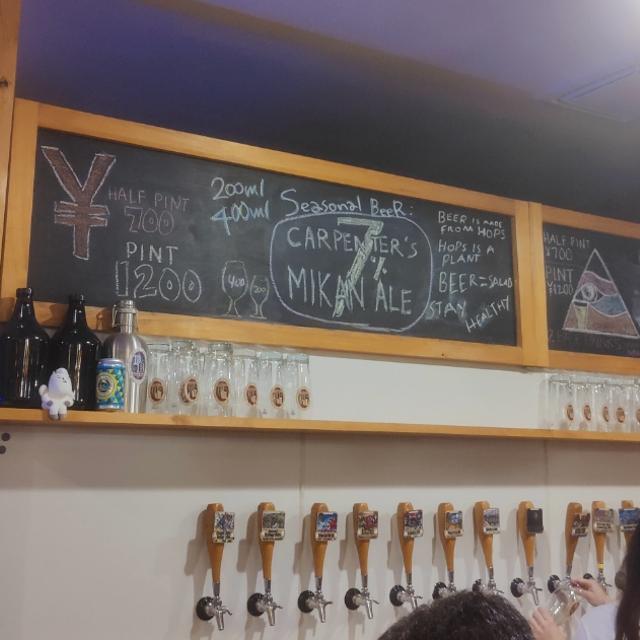 ¥
HALF PINT
700
PINT
1200
200ml
400ml
400
200
Seasonal BeeR:
CARPENTER'S
MIKAN ALE
7%
BEER IS MADE
FROM HOPS
HOPS IS A
PLANT
BEER = SALAD
STAY
HEALTHY
HALF PINT
¥700
PINT
¥1200